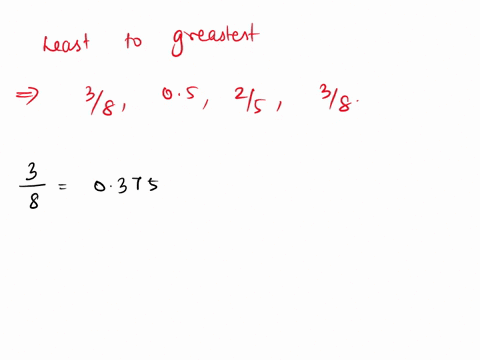 Least to greastest
⇒ 3/8, 0.5, 2/5, 3/8.
3/8 = 0.375